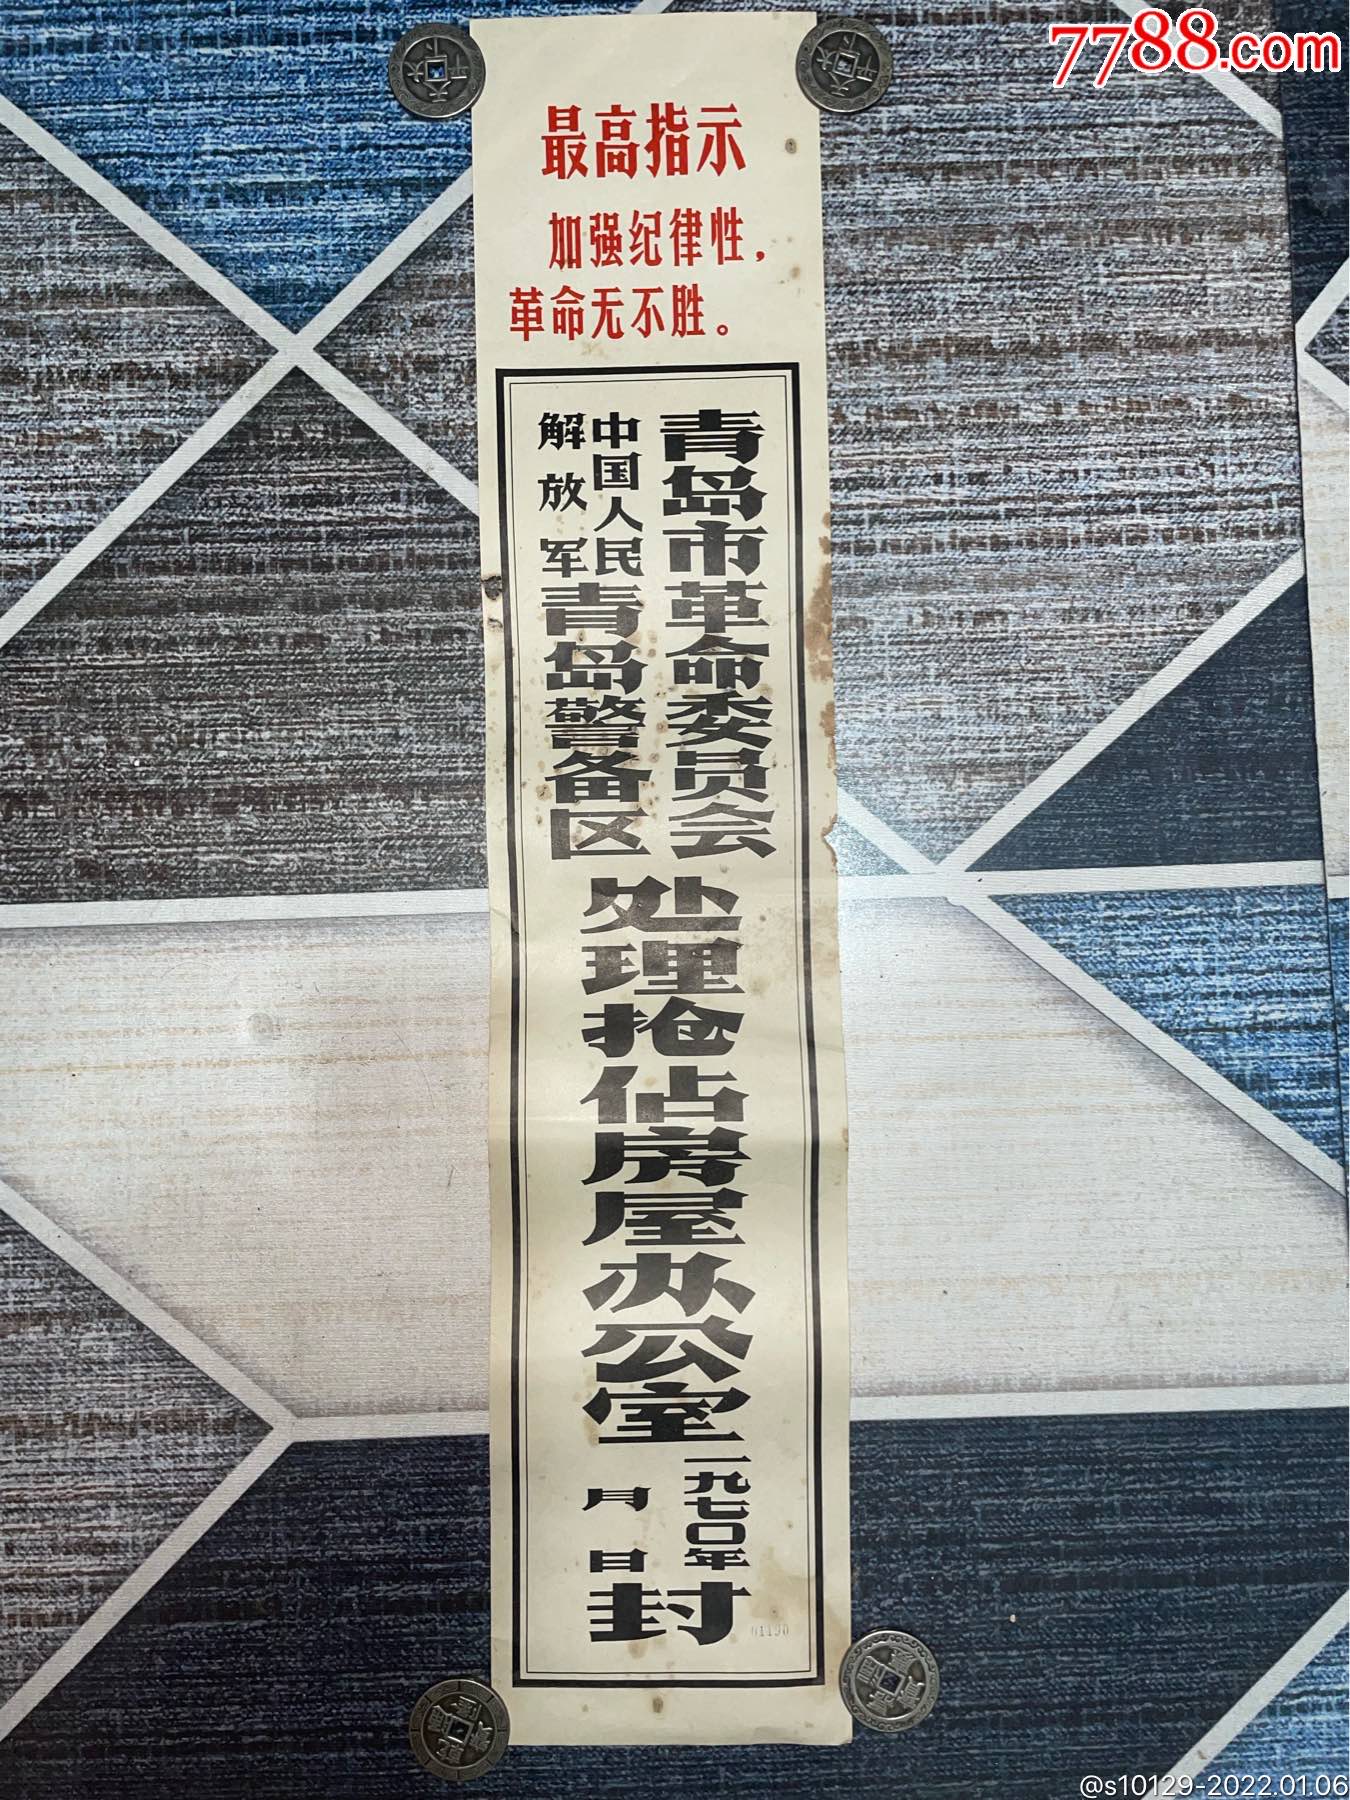 7788.com
最高指示
加强纪律性，
革命无不胜。
青岛市革命委员会
中国人民
解放军
青岛警备区
处理抢佔房屋办公室
一九七〇年
月 日
封
01190
@s10129-2022.01.06